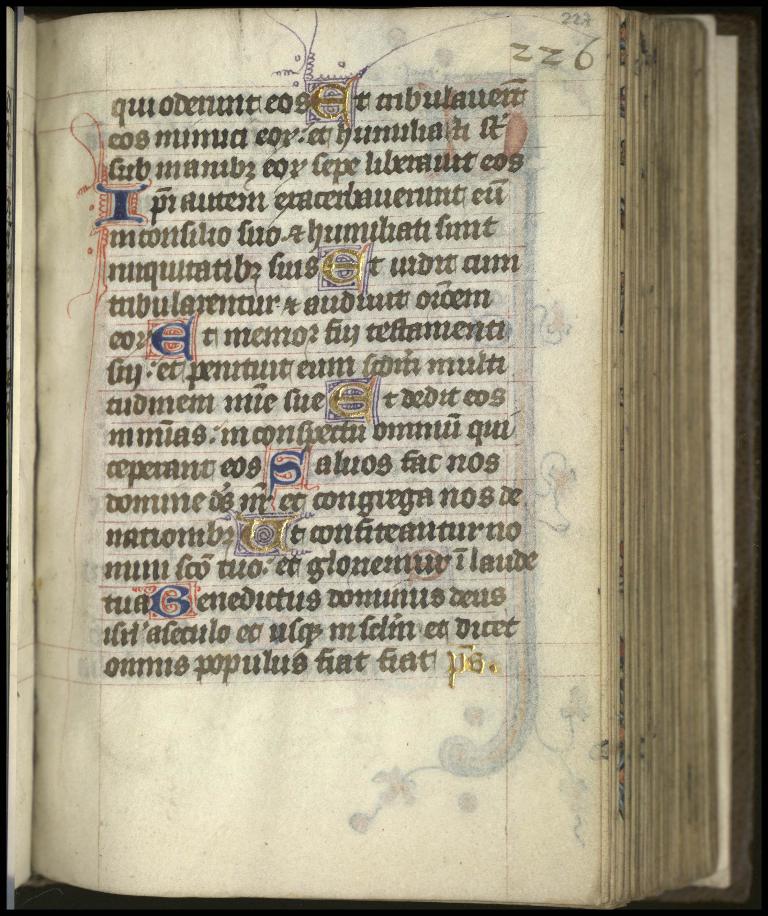 227
226
qui oderunt eos Et tribulauert̄
eos inimici eoꝝ: et humiliati st̄
sub manibꝫ eoꝝ sepe liberauit eos
Ip̄i autem exacerbauerunt eū
in consilio suo ⁊ humiliati sunt
in iniquitatibꝫ suis Et uidit cum
tribularentur ⁊ audiuit or̄oem
eoꝝ Et memor fuit testamenti
sui: et penituit eum scd̄m multi
tudinem mīe sue Et dedit eos
in mīas: in conspectu omniū qui
ceperant eos Saluos fac nos
domine ds̄ nr̄ et congrega nos de
nationibꝫ Ut confiteantur no
mini scō tuo: et gloriemur ī laude
tua Benedictus dominus deus
isrl̄ a seculo et usqꝫ in sclm̄ et dicet
omnis populus fiat fiat p̄s.